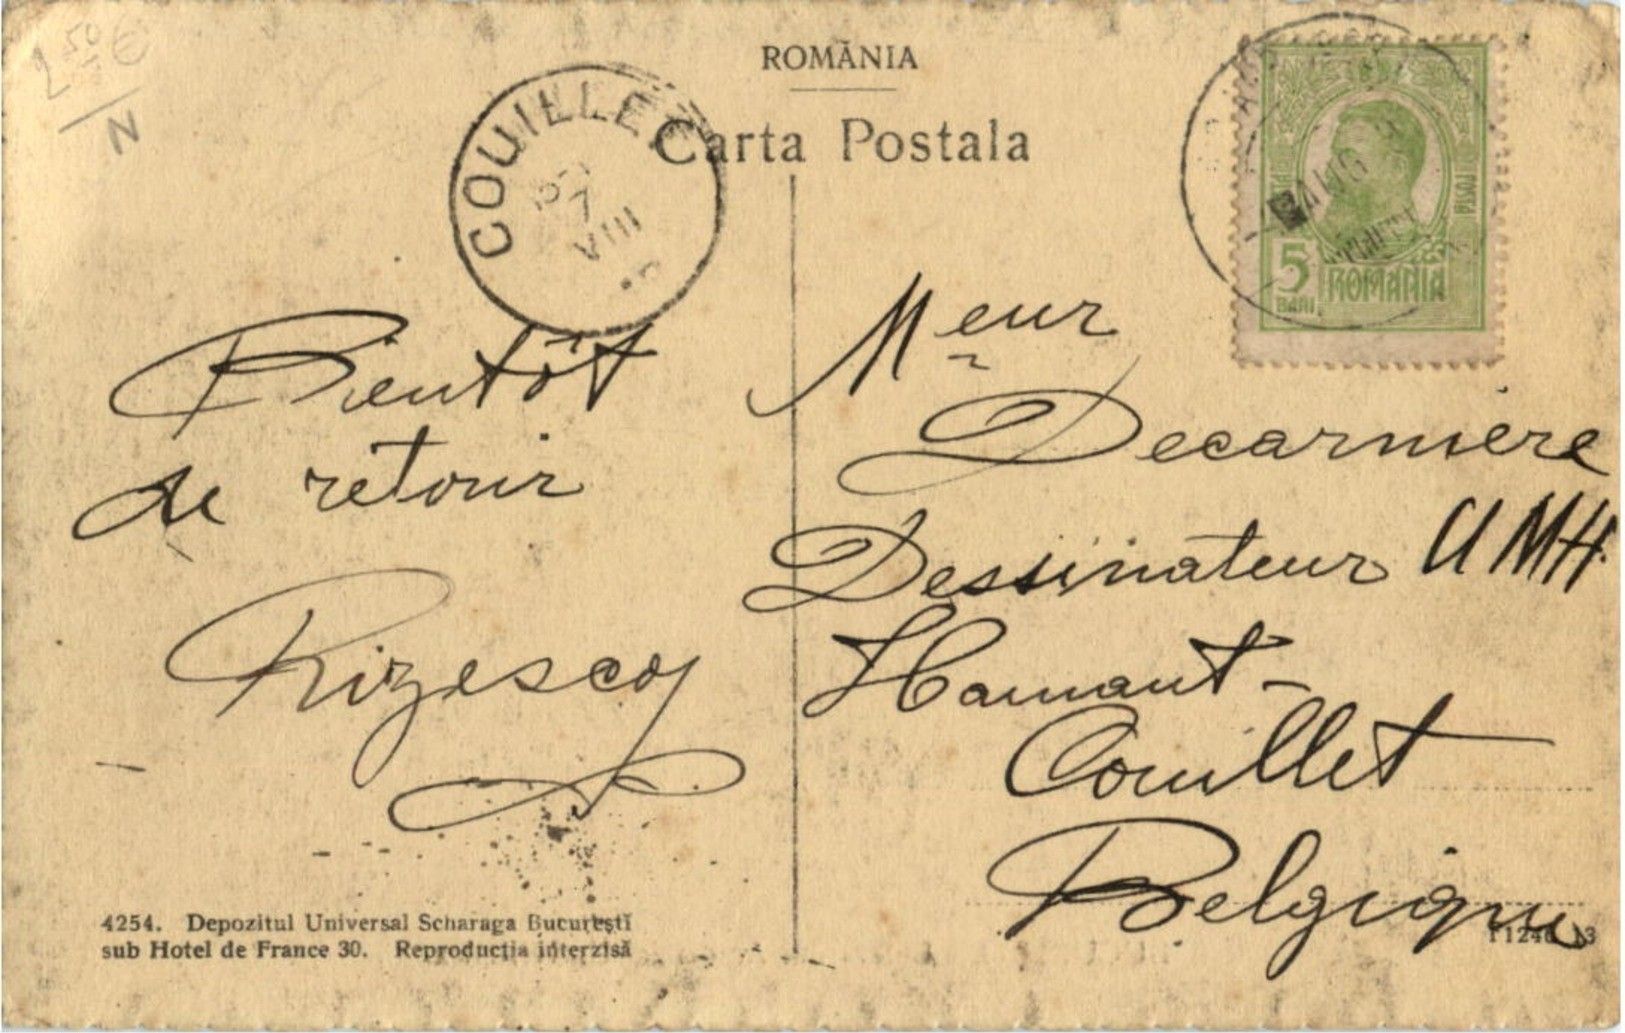 2 50 €
N
ROMÂNIA
Carta Postala
COUILLET
7
VIII
AUG
5
BANI
ROMANIA
Bientôt
de retour
Rizescoy
Meur
Decarniere
Dessinateur UMH.
Hainaut-
Couillet
Belgique
4254. Depozitul Universal Scharaga Bucureşti
sub Hotel de France 30. Reproducţia interzisă